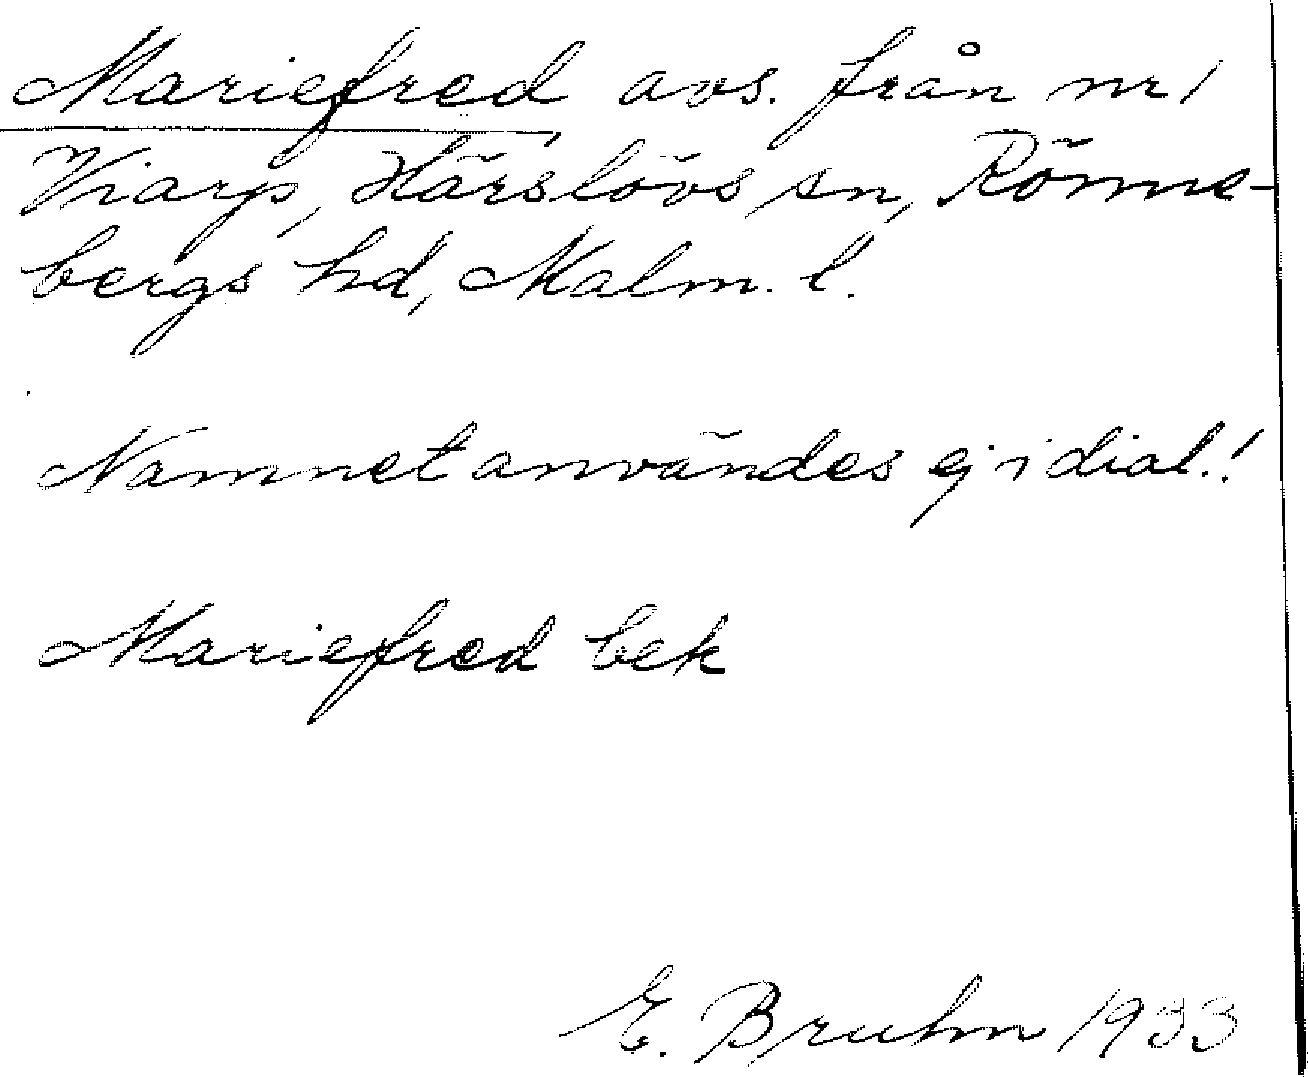 Mariefred avs. från nr 1
Viarp, Härslövs sn, Rönne-
bergs hd, Malm. l.
Namnet användes ej i dial.!
Mariefred bek
E. Bruhn 1933